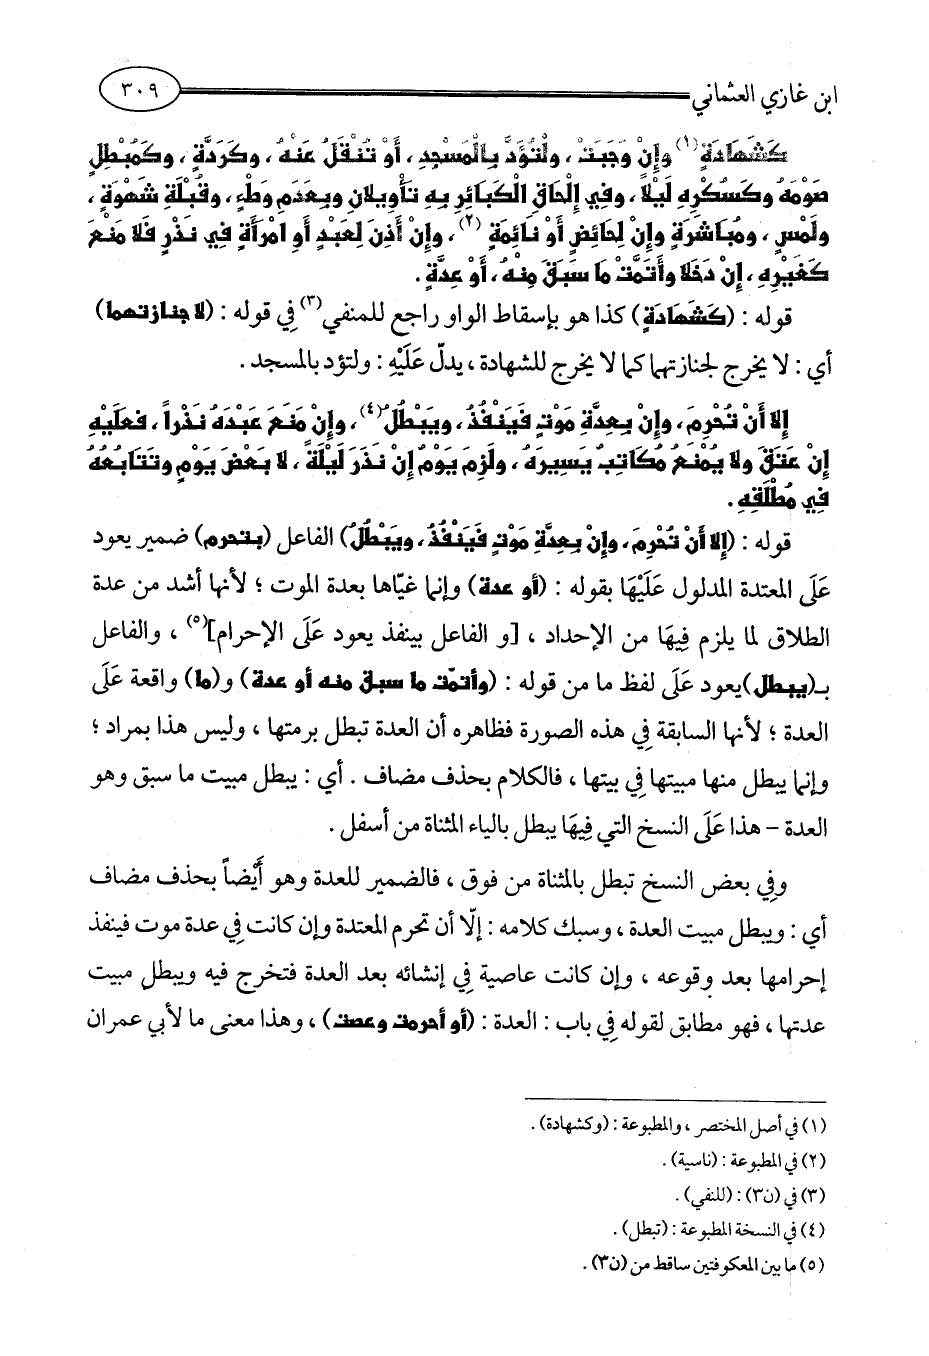 ابن غازي العثماني ٣٠٩
كَشَهَادَةٍ(١) وإِنْ وَجَبَتْ ، ولْتُؤَدَّ بِالْمَسْجِدِ ، أَوْ تُنْقَلُ عَنْهُ ، وكَرَدَّةٍ ، وكَمُبْطِلٍ
صَوْمَهُ وكَسُكْرِهِ لَيْلاً ، وفِي إِلْحَاقِ الْكَبَائِرِ بِهِ تَأْوِيلانِ وبِعَدَمِ وَطْءٍ ، وقُبْلَةِ شَهْوَةٍ ،
ولَمْسٍ ، ومُبَاشَرَةٍ وإِنْ لِحَائِضٍ أَوْ نَائِمَةٍ (٢) ، وإِنْ أَذِنَ لِعَبْدٍ أَوِ امْرَأَةٍ فِي نَذْرٍ فَلا مَنْعَ
كَغَيْرِهِ ، إِنْ دَخَلا وأَتَمَّتْ مَا سَبَقَ مِنْهُ ، أَوْ عِدَّةٍ .
قوله : (كَشَهَادَةٍ) كذا هو بإسقاط الواو راجع للمنفي(٣) في قوله : (لا جنازتهما)
أي : لا يخرج لجنازتهما كما لا يخرج للشهادة ، يدلّ عَلَيْهِ : ولتؤد بالمسجد .
إِلا أَنْ تُحْرِمَ ، وإِنْ بِعِدَّةِ مَوْتٍ فَيَنْفُذُ ، ويَبْطُلُ(٤) ، وإِنْ مَنَعَ عَبْدَهُ نَذْراً ، فَعَلَيْهِ
إِنْ عَتَقَ ولا يُمْنَعُ مُكَاتِبٌ يَسِيرَهُ ، ولَزِمَ يَوْمٌ إِنْ نَذَرَ لَيْلَةً ، لا بَعْضَ يَوْمٍ وتَتَابُعُهُ
فِي مُطْلَقِهِ .
قوله : (إِلا أَنْ تُحْرِمَ ، وإِنْ بِعِدَّةِ مَوْتٍ فَيَنْفُذُ ، ويَبْطُلُ) الفاعل (بتحرم) ضمير يعود
عَلَى المعتدة المدلول عَلَيْهَا بقوله : (أو عدة) وإنما غيّاها بعدة الموت ؛ لأنها أشد من عدة
الطلاق لما يلزم فِيهَا من الإحداد ، [و الفاعل بينفذ يعود عَلَى الإحرام](٥) ، والفاعل
بـ(يبطل)يعود عَلَى لفظ ما من قوله : (وأتمّت ما سبق منه أو عدة) و(ما) واقعة عَلَى
العدة ؛ لأنها السابقة في هذه الصورة فظاهره أن العدة تبطل برمتها ، وليس هذا بمراد ؛
وإنما يبطل منها مبيتها في بيتها ، فالكلام بحذف مضاف . أي : يبطل مبيت ما سبق وهو
العدة – هذا عَلَى النسخ التي فِيهَا يبطل بالياء المثناة من أسفل .
وفِي بعض النسخ تبطل بالمثناة من فوق ، فالضمير للعدة وهو أَيْضاً بحذف مضاف
أي : ويبطل مبيت العدة ، وسبك كلامه : إلّا أن تحرم المعتدة وإن كانت في عدة موت فينفذ
إحرامها بعد وقوعه ، وإن كانت عاصية في إنشائه بعد العدة فتخرج فيه ويبطل مبيت
عدتها ، فهو مطابق لقوله في باب : العدة : (أو أحرمت وعصت) ، وهذا معنى ما لأبي عمران
(١) في أصل المختصر ، والمطبوعة : (وكشهادة) .
(٢) في المطبوعة : (ناسية) .
(٣) في (ن٣) : (للنفي) .
(٤) في النسخة المطبوعة : (تبطل) .
(٥) ما بين المعكوفتين ساقط من (ن٣) .